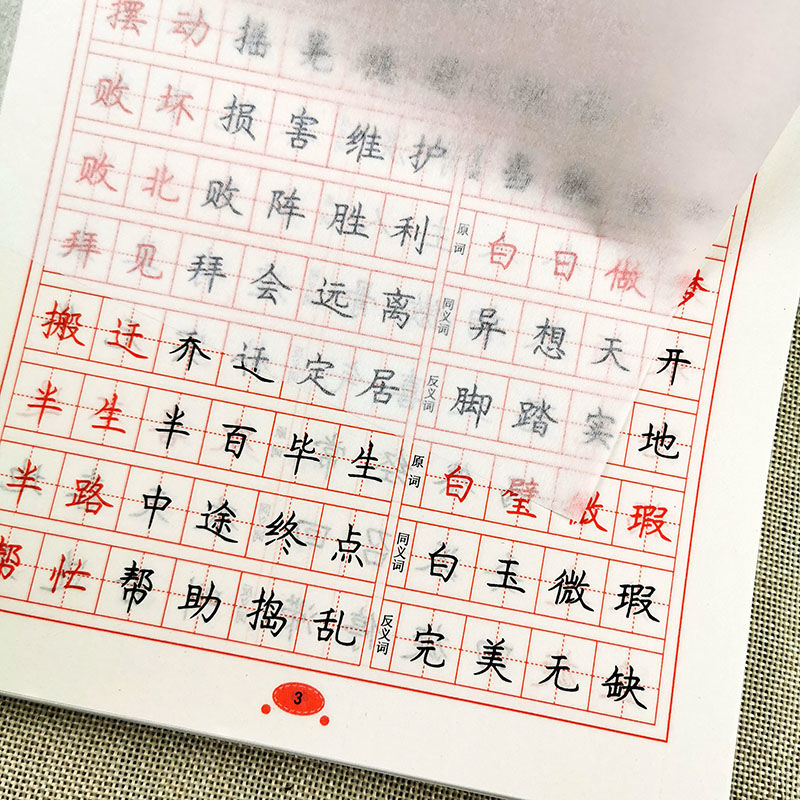 摆动 摇晃
败坏 损害 维护
败北 败阵 胜利
拜见 拜会 远离
搬迁 乔迁 定居
半生 半百 毕生
半路 中途 终点
帮忙 帮助 捣乱
原词 白日做梦
同义词 异想天开
反义词 脚踏实地
原词 白璧微瑕
同义词 白玉微瑕
反义词 完美无缺
3